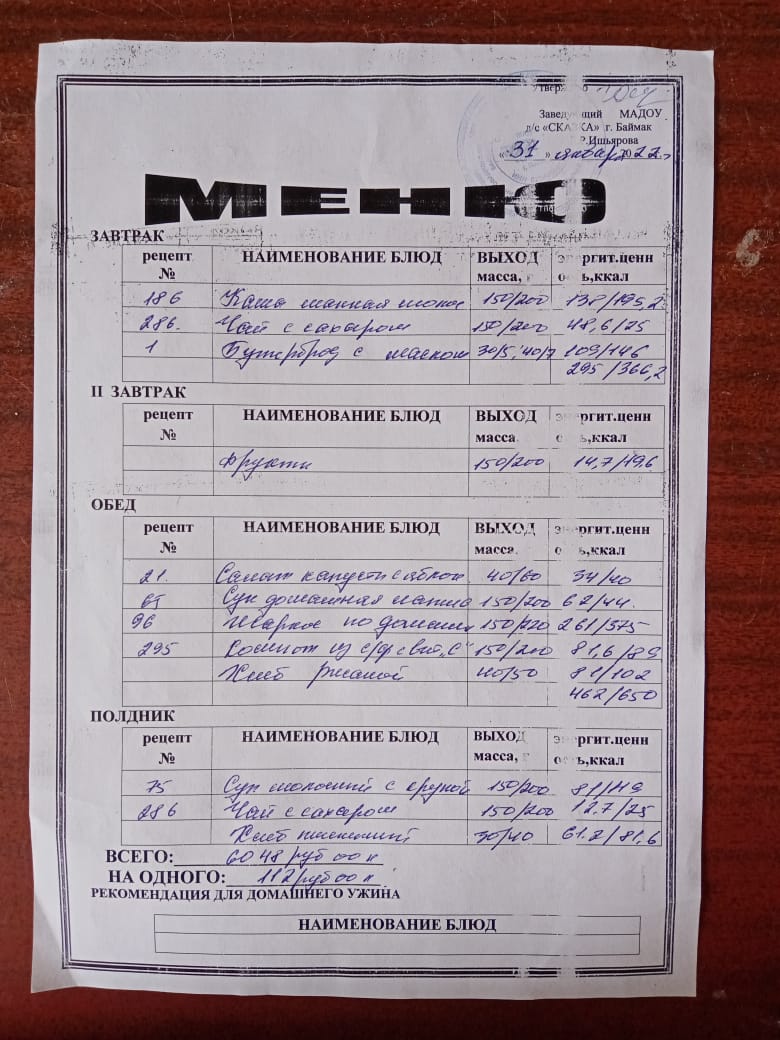 Заведующий МАДОУ
д/с «СКАЗКА» г. Баймак
Р.Ишьярова
« 31 » января 2022 г
МЕНЮ
ЗАВТРАК
рецепт № НАИМЕНОВАНИЕ БЛЮД ВЫХОД масса, энергит.ценн ость,ккал
186 Каша манная молоч 150/200 138/195,2
286. Чай с сахаром 150/200 48,6/75
1 Бутерброд с маслом 30/5; 40/7 109/146
295/366,2
II ЗАВТРАК
рецепт № НАИМЕНОВАНИЕ БЛЮД ВЫХОД масса. энергит.ценн ость,ккал
Фрукты 150/200 14,7/19,6
ОБЕД
рецепт № НАИМЕНОВАНИЕ БЛЮД ВЫХОД масса. энергит.ценн ость,ккал
21. Салат капусты с яблок 40/60 34/40
65 Суп домашняя лапша 150/200 62/44.
96 Жаркое по домашн 150/220 261/375
295 Компот из с/ф с вит „С" 150/200 81,6/89
Хлеб ржаной 40/50 81/102
462/650
ПОЛДНИК
рецепт № НАИМЕНОВАНИЕ БЛЮД ВЫХОД масса, энергит.ценн ость,ккал
75 Суп молочный с крупой 150/200 81/119
286 Чай с сахаром 150/200 12,7/25
Хлеб пшеничный 30/40 61.2/81,6
ВСЕГО: 6048/руб 00 к
НА ОДНОГО: 112/руб 00 к
РЕКОМЕНДАЦИЯ ДЛЯ ДОМАШНЕГО УЖИНА
НАИМЕНОВАНИЕ БЛЮД